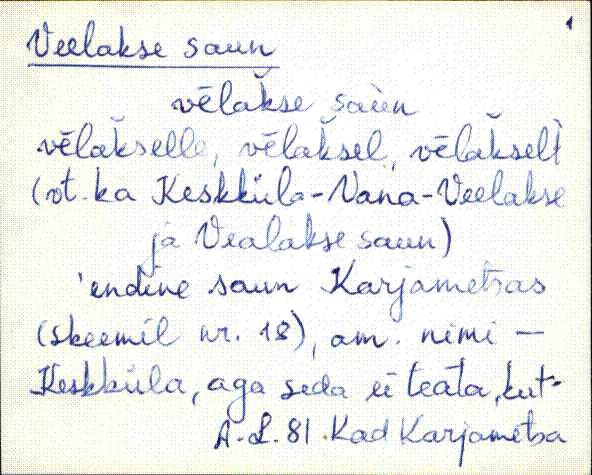 1
Veelakse saun
vēlakse saùn
vēlakselle, vēlaksel, vēlakselt
(vt. ka Keskküla-Vana-Veelakse
ja Vealakse saun)
'endine saun Karjametsas
(skeemil nr. 18), am. nimi —
Keskküla, aga seda ei teata, kut-
A.-L. 81. Kad Karjametsa